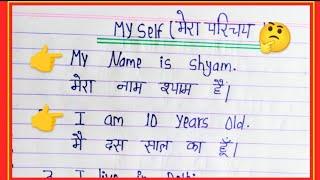 My Self (मेरा परिचय
My Name is Shyam.
मेरा नाम श्याम हैं।
I am 10 years old.
मै दस साल का हूँ।
3 I live in Delhi